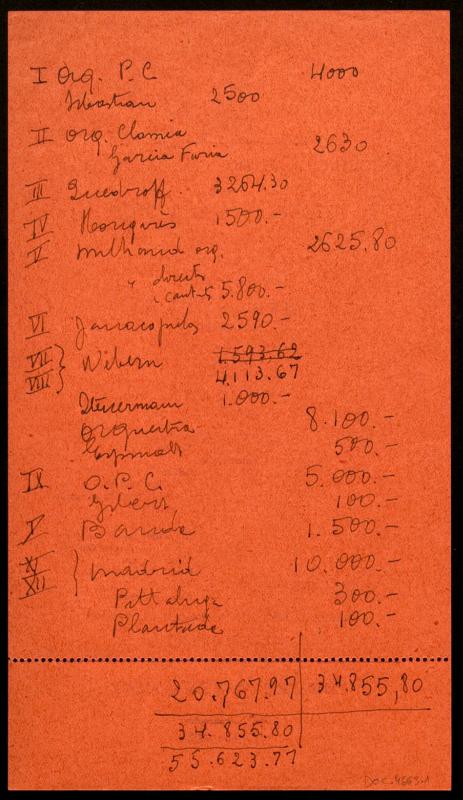 I Org. P. C. 4000
Sebastian 2500
II Org. Clasica
Garcia Faria 2630
III 3264.30
IV 1500.-
V Milhaud org. 2625,80
" direct.
" 5.800.-
VI 2590.-
VII} Webern 1.593,62
VIII 4.113.67
Steuermann 1.000.-
Orquestra 8.100.-
Espinalt 500.-
IX O. P. C. 5.000.-
Gibert 100.-
X 1.500.-
XI} Madrid 10.000.-
XII
Pittaluga 300.-
Plantada 100.-
20.767.97 34.855,80
34.855.80
55.623.77
DOC.4563-1